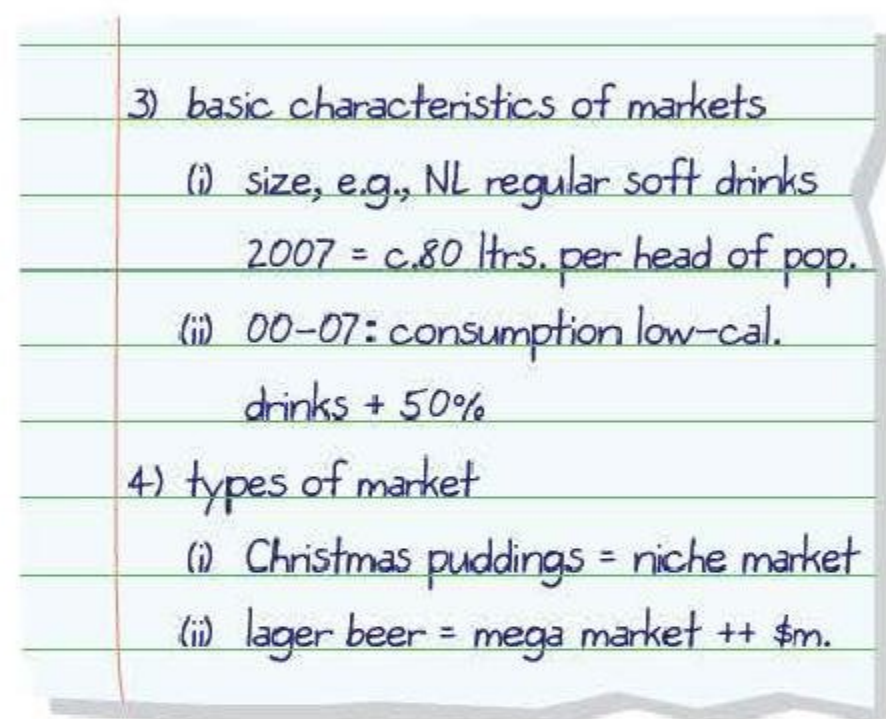 3) basic characteristics of markets
(i) size, e.g., NL regular soft drinks
2007 = c.80 ltrs. per head of pop.
(ii) 00-07: consumption low-cal.
drinks + 50%
4) types of market
(i) Christmas puddings = niche market
(ii) lager beer = mega market ++ $m.